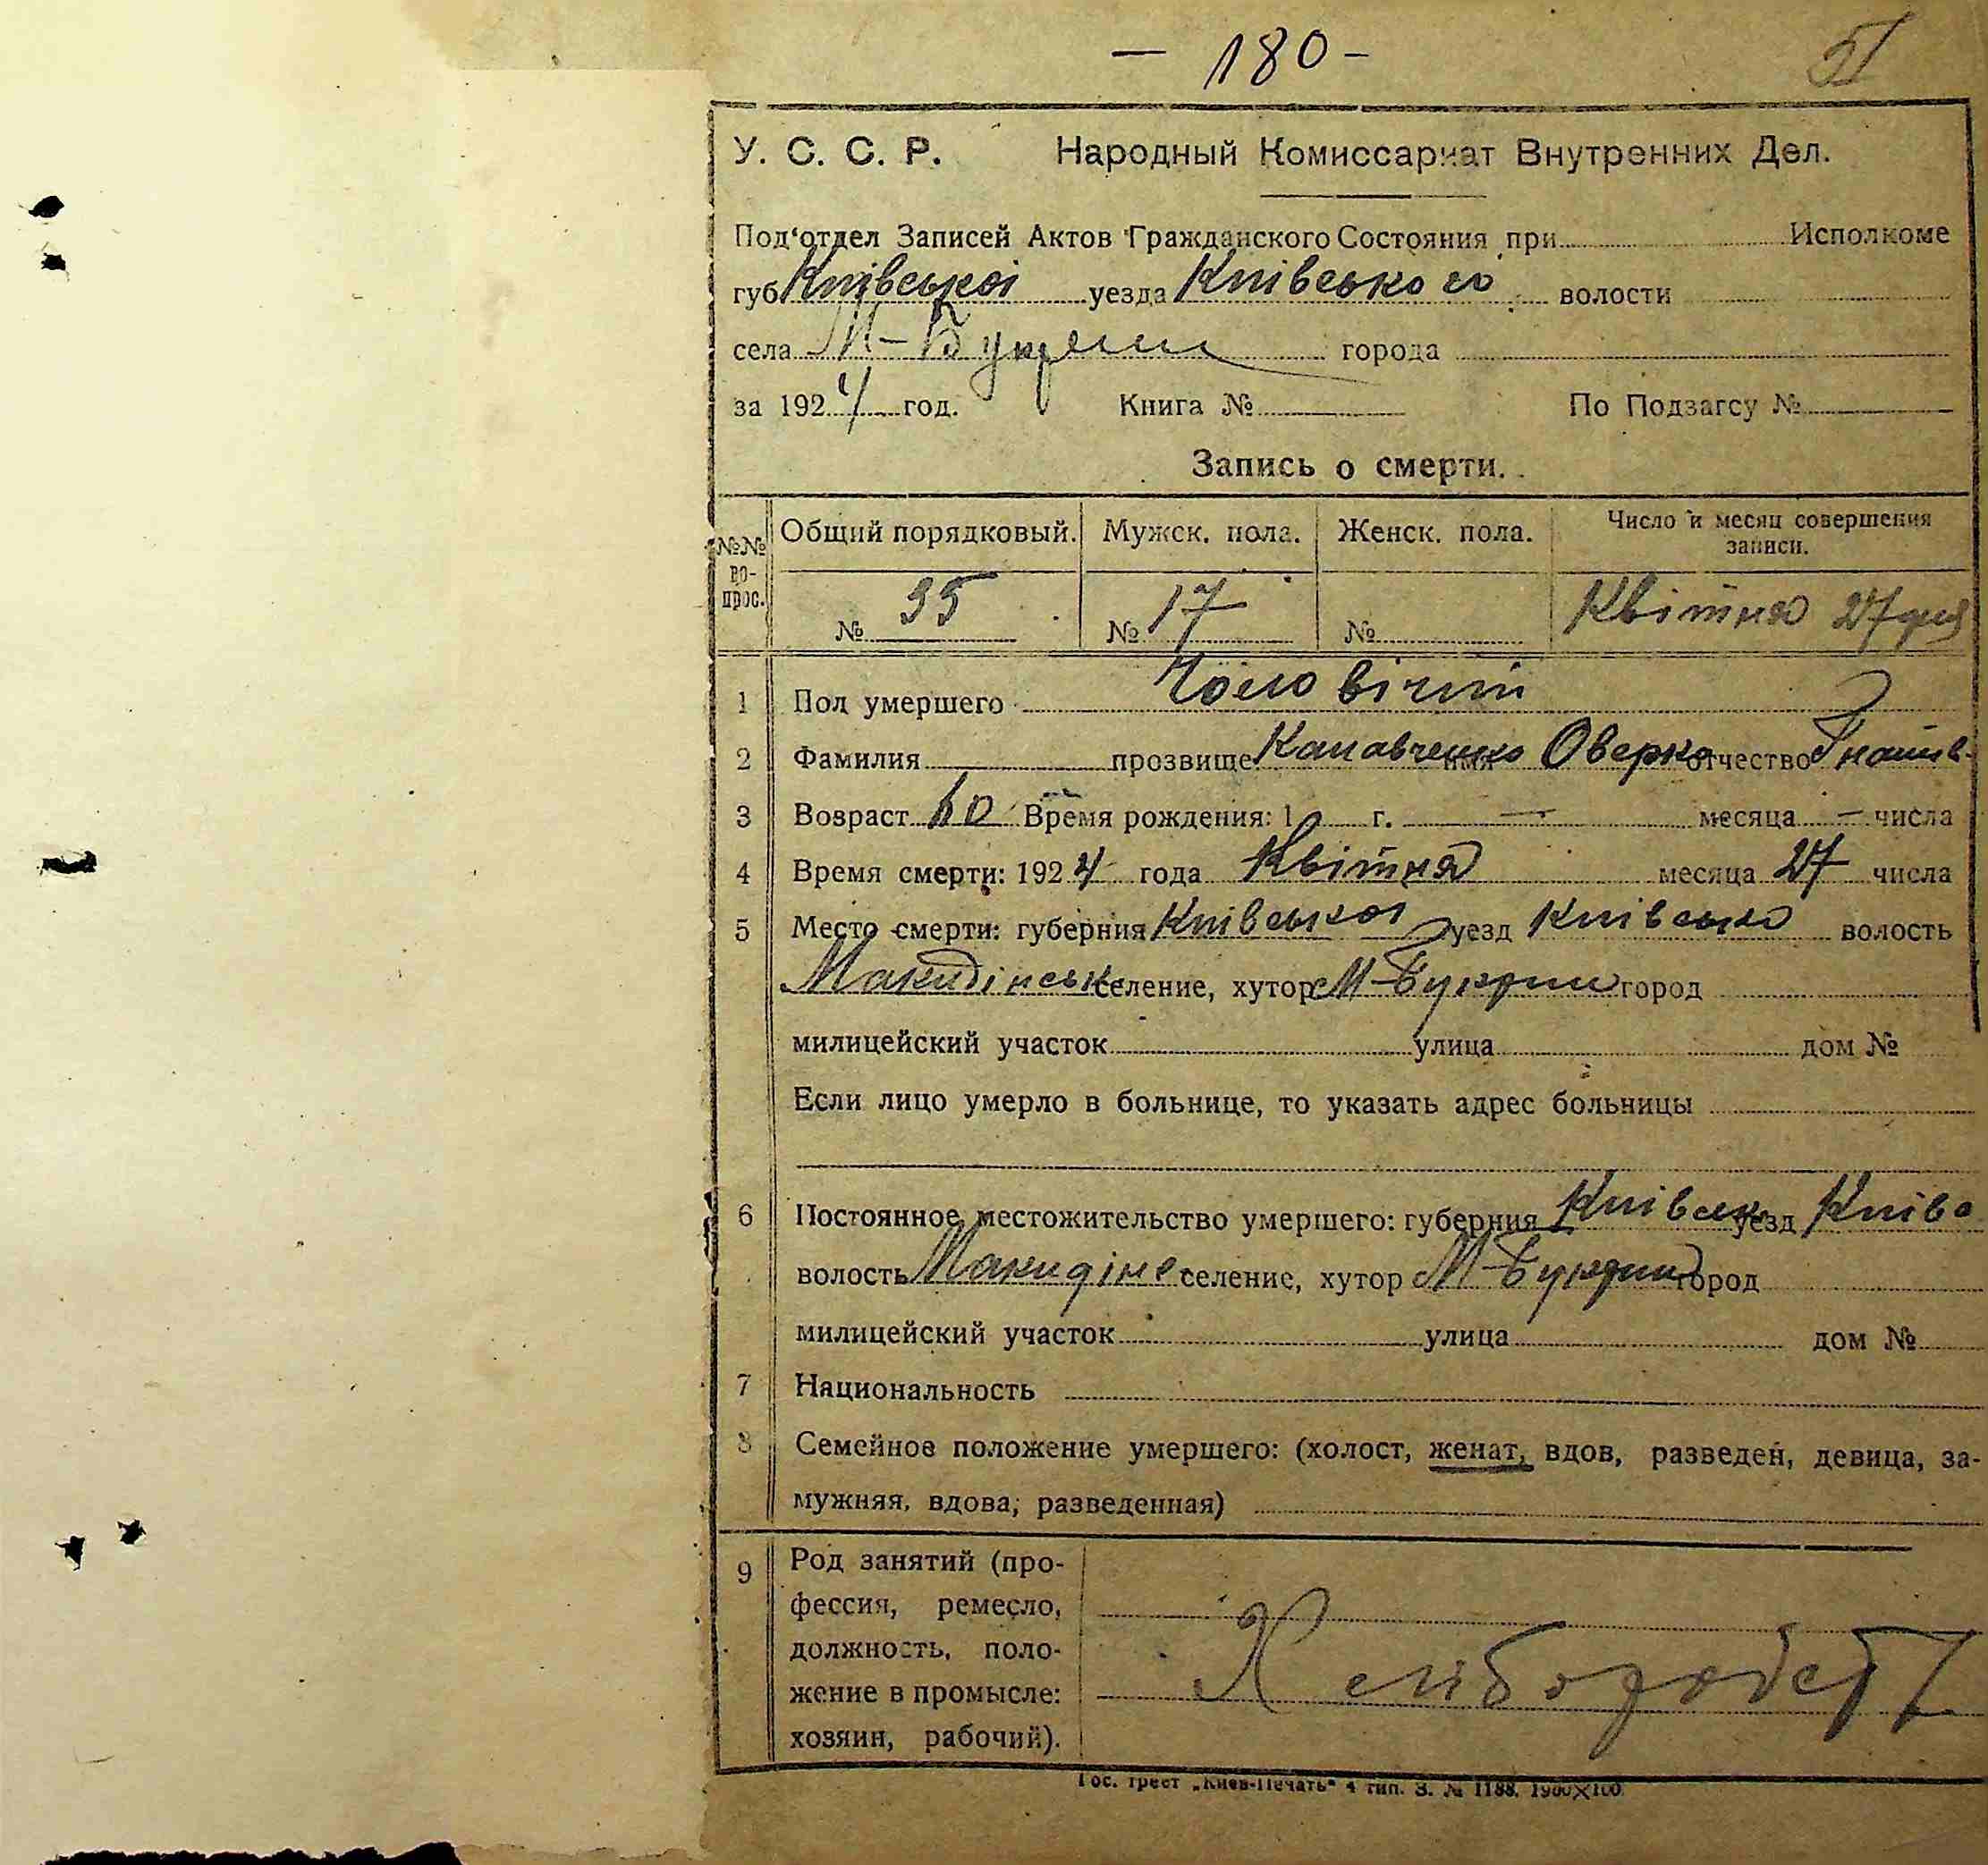 — 180 —
51
У. С. С. Р. Народный Комиссариат Внутренних Дел.
Под'отдел Записей Актов Гражданского Состояния при Исполкоме
губ Київської уезда Київського волости
села М-Букрин города
за 1924 год. Книга № По Подзагсу №
Запись о смерти.
№№ во-прос. Общий порядковый. Мужск. пола. Женск. пола. Число и месяц совершения записи.
№ 35 № 17 № Квітня 27 дня
1 Пол умершего Чоловічий
2 Фамилия прозвище имя Оверко отчество Гнатів
3 Возраст 60 Время рождения: 1 г. — месяца — числа
4 Время смерти: 1924 года Квітня месяца 27 числа
5 Место смерти: губерния Київської уезд Київсько волость
селение, хутор М-Букрин город
милицейский участок улица дом №
Если лицо умерло в больнице, то указать адрес больницы
6 Постоянное местожительство умершего: губерния Київськ уезд Київс
волость селение, хутор М-Букрин город
милицейский участок улица дом №
7 Национальность
8 Семейное положение умершего: (холост, женат, вдов, разведен, девица, за-
мужняя, вдова, разведенная)
9 Род занятий (про-
фессия, ремесло,
должность, поло-
жение в промысле:
хозяин, рабочий).
Хлибороб
Гос. трест „Киев-Печать" 4 тип. З. № 1188. 1900×100